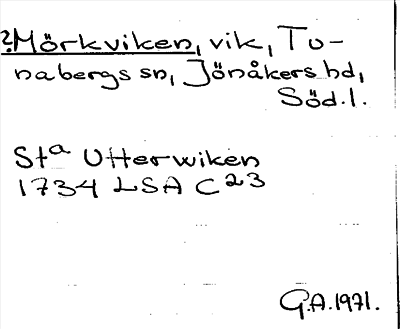 ?Mörkviken, vik, Tu-
nabergs sn, Jönåkers hd,
Söd.l.
Sta Utterwiken
1734 LSA C23
G.A.1971.